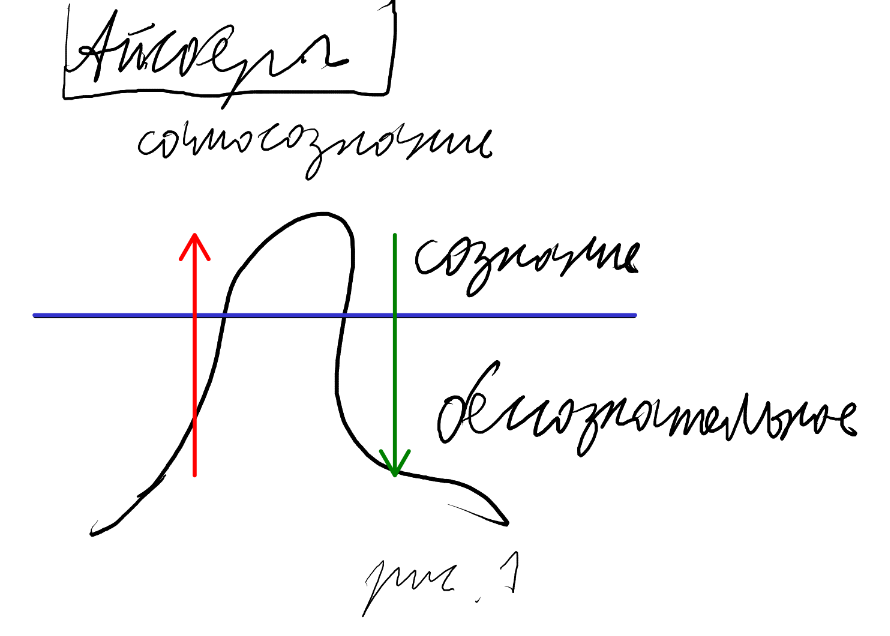 Айсберг
самосознание
сознание
бессознательное
рис. 1